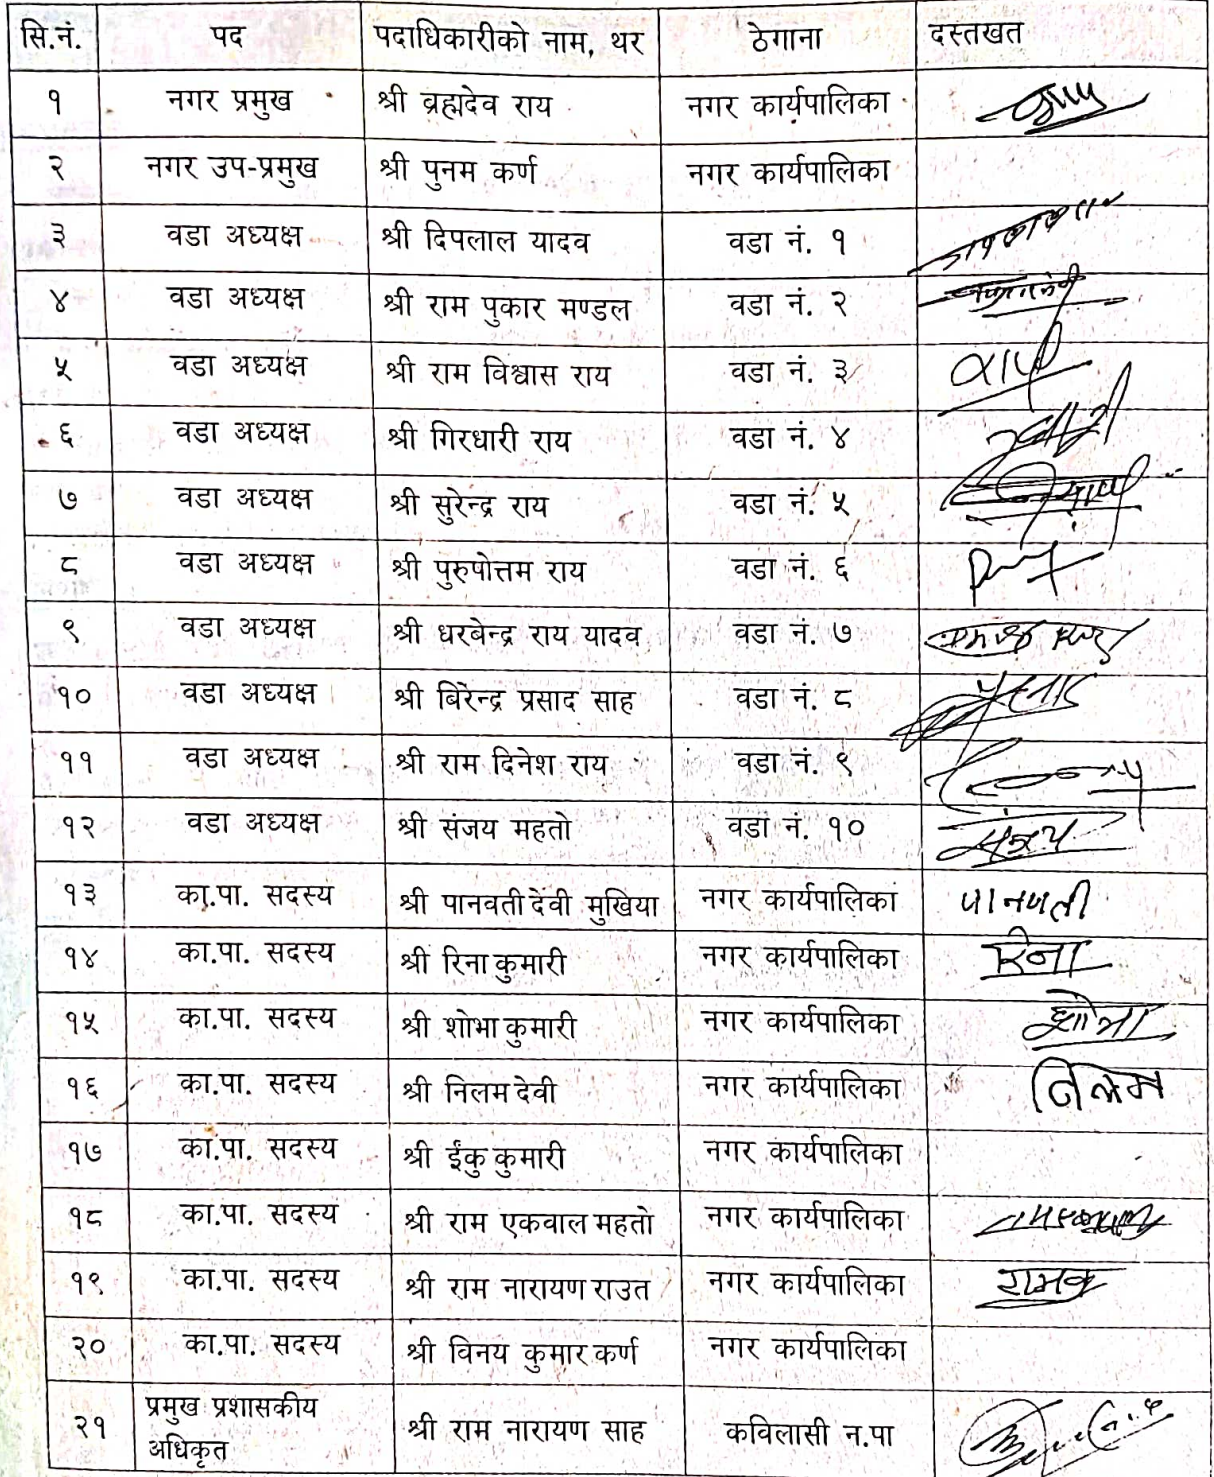 सि.नं. पद पदाधिकारीको नाम, थर ठेगाना दस्तखत
१ नगर प्रमुख श्री ब्रह्मदेव राय नगर कार्यपालिका
२ नगर उप-प्रमुख श्री पुनम कर्ण नगर कार्यपालिका
३ वडा अध्यक्ष श्री दिपलाल यादव वडा नं. १
४ वडा अध्यक्ष श्री राम पुकार मण्डल वडा नं. २
५ वडा अध्यक्ष श्री राम विश्वास राय वडा नं. ३
६ वडा अध्यक्ष श्री गिरधारी राय वडा नं. ४
७ वडा अध्यक्ष श्री सुरेन्द्र राय वडा नं. ५
८ वडा अध्यक्ष श्री पुरुषोत्तम राय वडा नं. ६
९ वडा अध्यक्ष श्री धरबेन्द्र राय यादव वडा नं. ७
१० वडा अध्यक्ष श्री बिरेन्द्र प्रसाद साह वडा नं. ८
११ वडा अध्यक्ष श्री राम दिनेश राय वडा नं. ९
१२ वडा अध्यक्ष श्री संजय महतो वडा नं. १० संजय
१३ का.पा. सदस्य श्री पानवती देवी मुखिया नगर कार्यपालिका पानवती
१४ का.पा. सदस्य श्री रिना कुमारी नगर कार्यपालिका रिना
१५ का.पा. सदस्य श्री शोभा कुमारी नगर कार्यपालिका शोभा
१६ का.पा. सदस्य श्री निलम देवी नगर कार्यपालिका निलम
१७ का.पा. सदस्य श्री ईंकु कुमारी नगर कार्यपालिका
१८ का.पा. सदस्य श्री राम एकवाल महतो नगर कार्यपालिका
१९ का.पा. सदस्य श्री राम नारायण राउत नगर कार्यपालिका
२० का.पा. सदस्य श्री विनय कुमार कर्ण नगर कार्यपालिका
२१ प्रमुख प्रशासकीय श्री राम नारायण साह कविलासी न.पा
अधिकृत